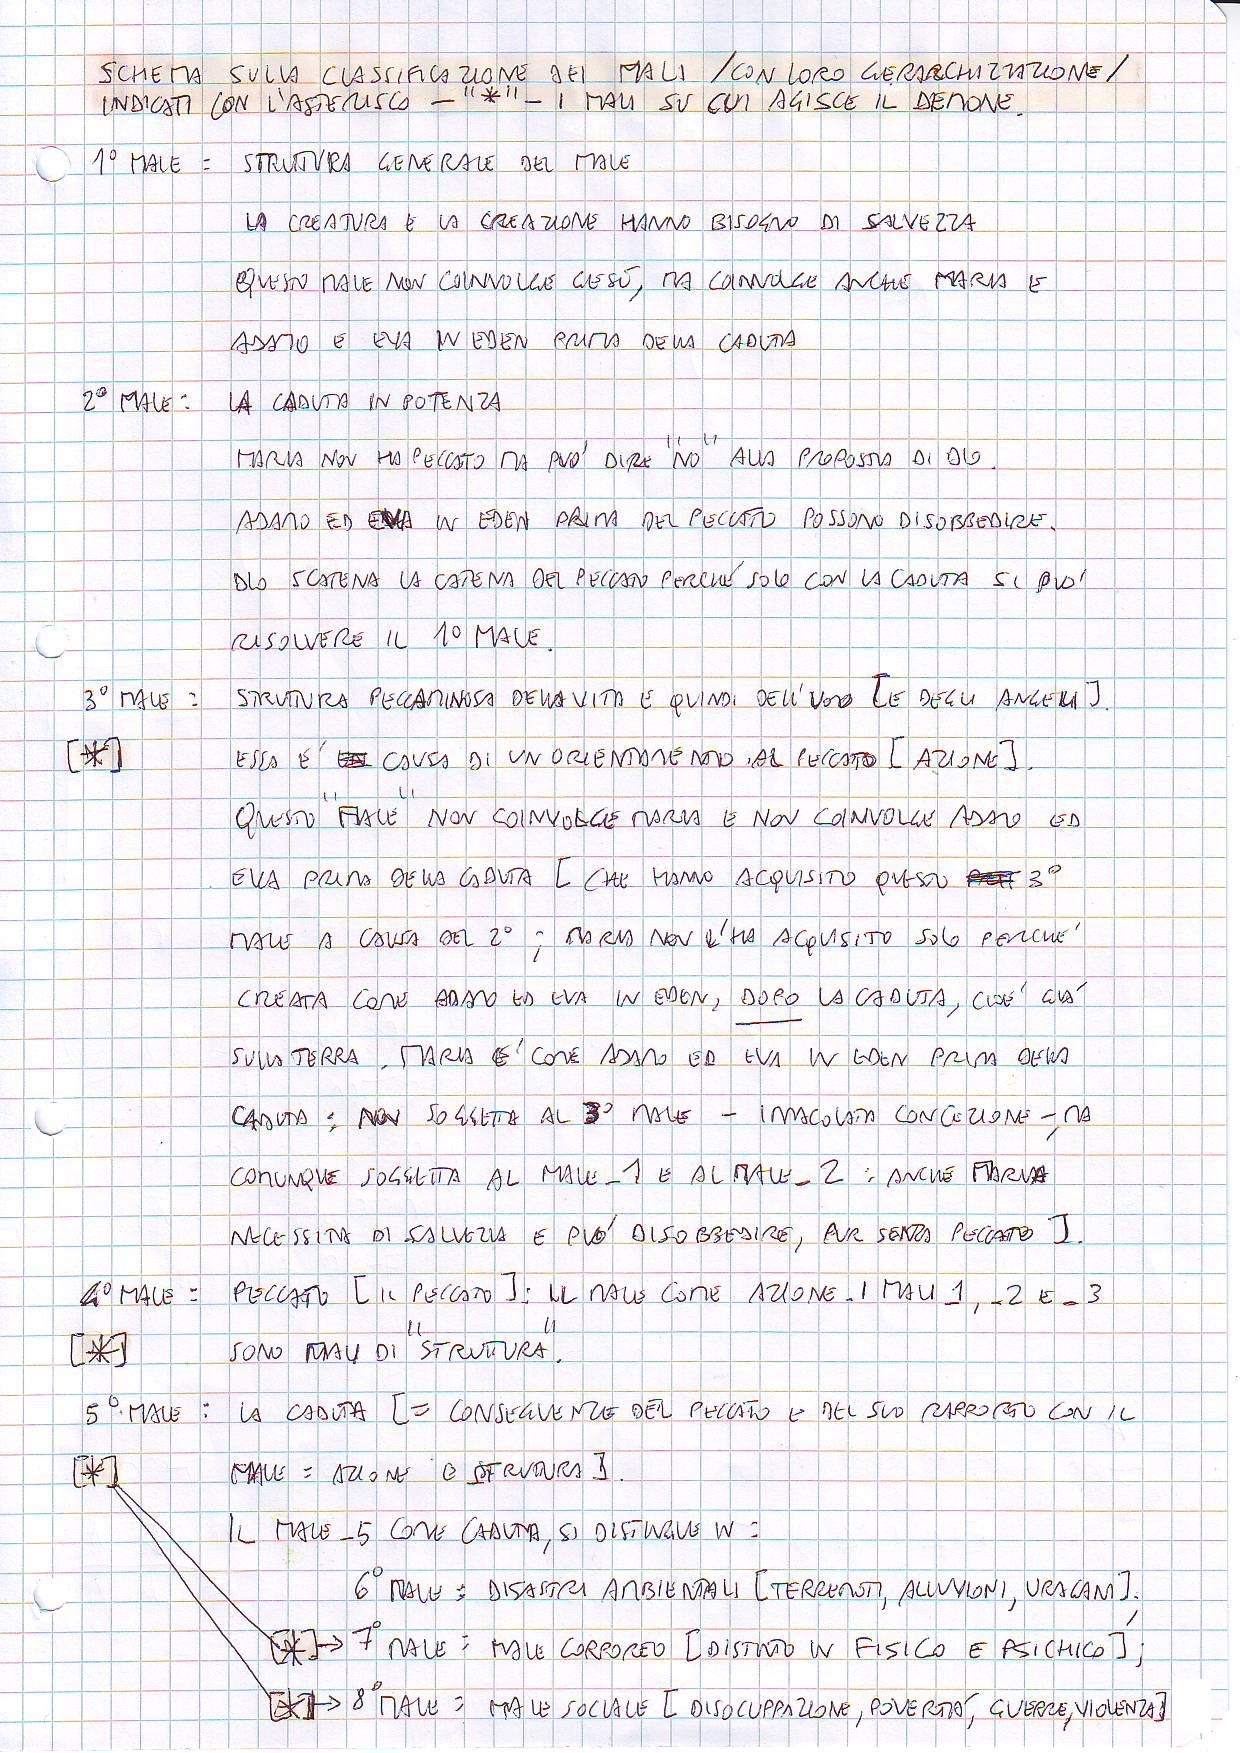 SCHEMA SULLA CLASSIFICAZIONE DEI MALI /CON LORO GERARCHIZZAZIONE/
INDICATI CON L'ASTERISCO - "*" - I MALI SU CUI AGISCE IL DEMONE.
1° MALE = STRUTTURA GENERALE DEL MALE
LA CREATURA E LA CREAZIONE HANNO BISOGNO DI SALVEZZA
QUESTO MALE NON COINVOLGE GESÙ, MA COINVOLGE ANCHE MARIA E
ADAMO E EVA IN EDEN PRIMA DELLA CADUTA
2° MALE = LA CADUTA IN POTENZA
MARIA NON HA PECCATO MA PUO' DIRE "NO" ALLA PROPOSTA DI DIO.
ADAMO ED EVA IN EDEN PRIMA DEL PECCATO POSSONO DISOBBEDIRE.
DIO SCATENA LA CATENA DEL PECCATO PERCHE' SOLO CON LA CADUTA SI PUO'
RISOLVERE IL 1° MALE.
3° MALE = STRUTTURA PECCAMINOSA DELLA VITA E QUINDI DELL'UOMO [E DEGLI ANGELI].
[*] ESSA E' CAUSA DI UN ORIENTAMENTO AL PECCATO [AZIONE].
QUESTO "MALE" NON COINVOLGE MARIA E NON COINVOLGE ADAMO ED
EVA PRIMA DELLA CADUTA [CHE HANNO ACQUISITO QUESTO 3°
MALE A CAUSA DEL 2° ; MARIA NON L'HA ACQUISITO SOLO PERCHE'
CREATA COME ADAMO ED EVA IN EDEN, DOPO LA CADUTA, CIOE' GIA'
SULLA TERRA. MARIA E' COME ADAMO ED EVA IN EDEN PRIMA DELLA
CADUTA : NON SOGGETTA AL 3° MALE - IMMACOLATA CONCEZIONE -, MA
COMUNQUE SOGGETTA AL MALE_1 E AL MALE_2 : ANCHE MARIA
NECESSITA DI SALVEZZA E PUO' DISOBBEDIRE, PUR SENZA PECCATO].
4° MALE = PECCATO [IL PECCATO] : IL MALE COME AZIONE. I MALI_1, _2 E _3
[*] SONO MALI DI "STRUTTURA".
5° MALE : LA CADUTA [= CONSEGUENZE DEL PECCATO E DEL SUO RAPPORTO CON IL
[*] MALE = AZIONE E STRUTTURA].
IL MALE_5 COME CADUTA, SI DISTINGUE IN =
6° MALE = DISASTRI AMBIENTALI [TERREMOTI, ALLUVIONI, URAGANI];
[*]→ 7° MALE = MALE CORPOREO [DISTINTO IN FISICO E PSICHICO];
[*]→ 8° MALE = MALE SOCIALE [DISOCCUPAZIONE, POVERTA', GUERRE, VIOLENZA]